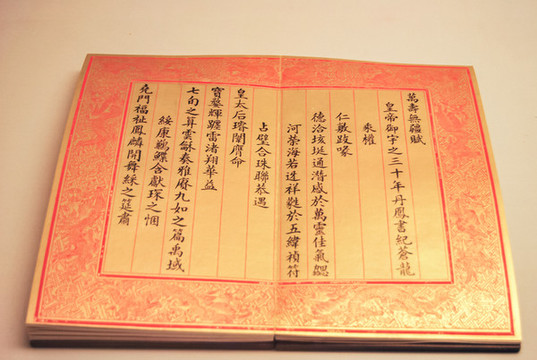 萬壽無疆賦
皇帝御宇之三十年丹鳳書紀蒼龍
乘權
仁敷跂喙
德洽垓埏通潛感於萬靈佳氣
河榮海若迭祥甡於五緯禎符
占璧合珠聯恭遇
皇太后瑞闓膺命
寶婺輝躔雷渚翔華益
七旬之算雲龢奏雅賡九如之篇禹域
綏康鶼鰈含獻琛之悃
堯門福祉鳳麟開舞綵之筵肅